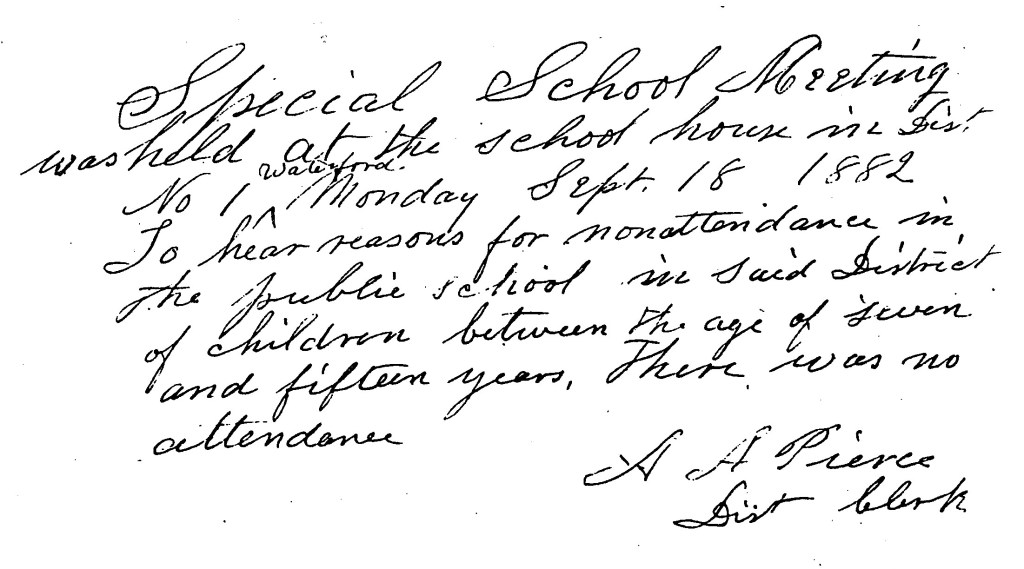 Special School Meeting
was held at the school house in Dist.
No 1 ^ Waterford. Monday Sept. 18 1882
To hear reasons for nonattendance in
the public school in said District
of children between the age of seven
and fifteen years, There was no
attendance
A A Pierce
Dist Clerk